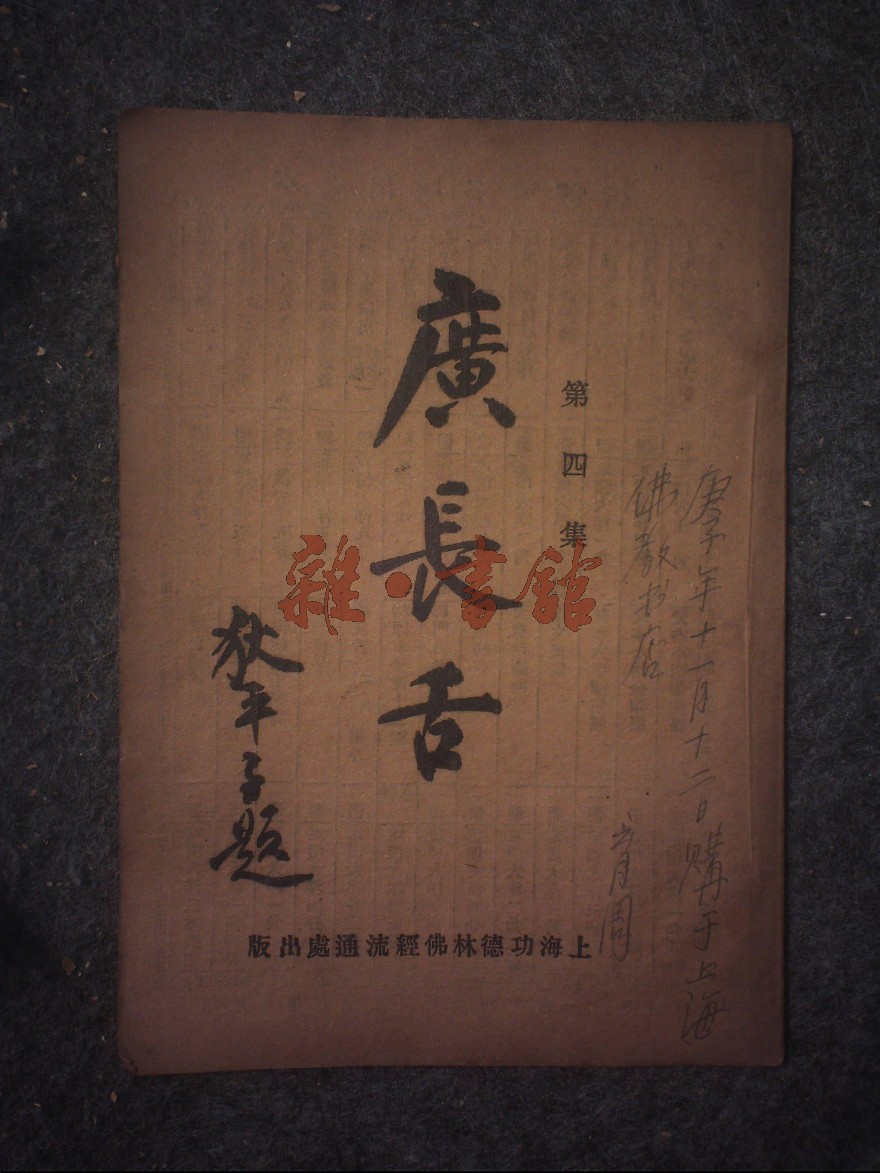 庚子年十一月十二日購于上海
佛教书店
第四集
廣長舌
狄平子題
上海功德林佛經流通處出版
雜·書館